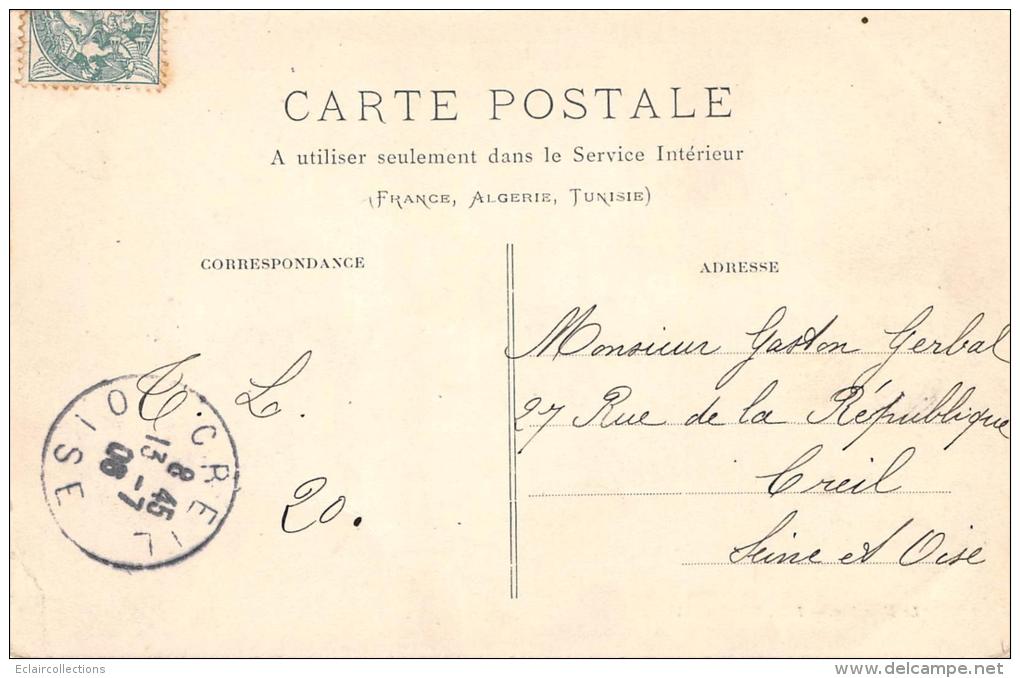 CARTE POSTALE
A utiliser seulement dans le Service Intérieur
(FRANCE, ALGERIE, TUNISIE)
CORRESPONDANCE
T. L.
20.
CREIL
OISE
8 45
13 -7
08
ADRESSE
Monsieur Gaston Gerbal
27 Rue de la République
Creil
Seine et Oise
Eclaircollections
www.delcampe.net